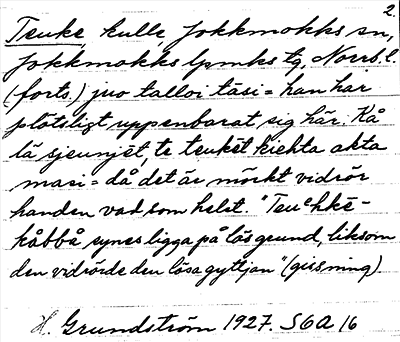 2.
Teuke, kulle, Jokkmokks sn,
Jokkmokks lpmks tg, Norrb. l.
(forts.) juo talloi täsi = han har
plötsligt uppenbarat sig här. Kå
lä sjeunjēt, te teukēt kiehta akta
masi = då det är mörkt vidrör
handen vad som helst. "Teuhkē-
kåbbå synes ligga på lös grund, liksom
den vidrörde den lösa gyttjan" (gissning).
H. Grundström 1927. SGA 16